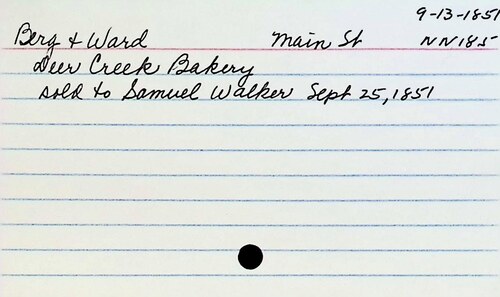 9-13-1851
Berg & Ward Main St NN185
Deer Creek Bakery
sold to Samuel Walker Sept 25, 1851